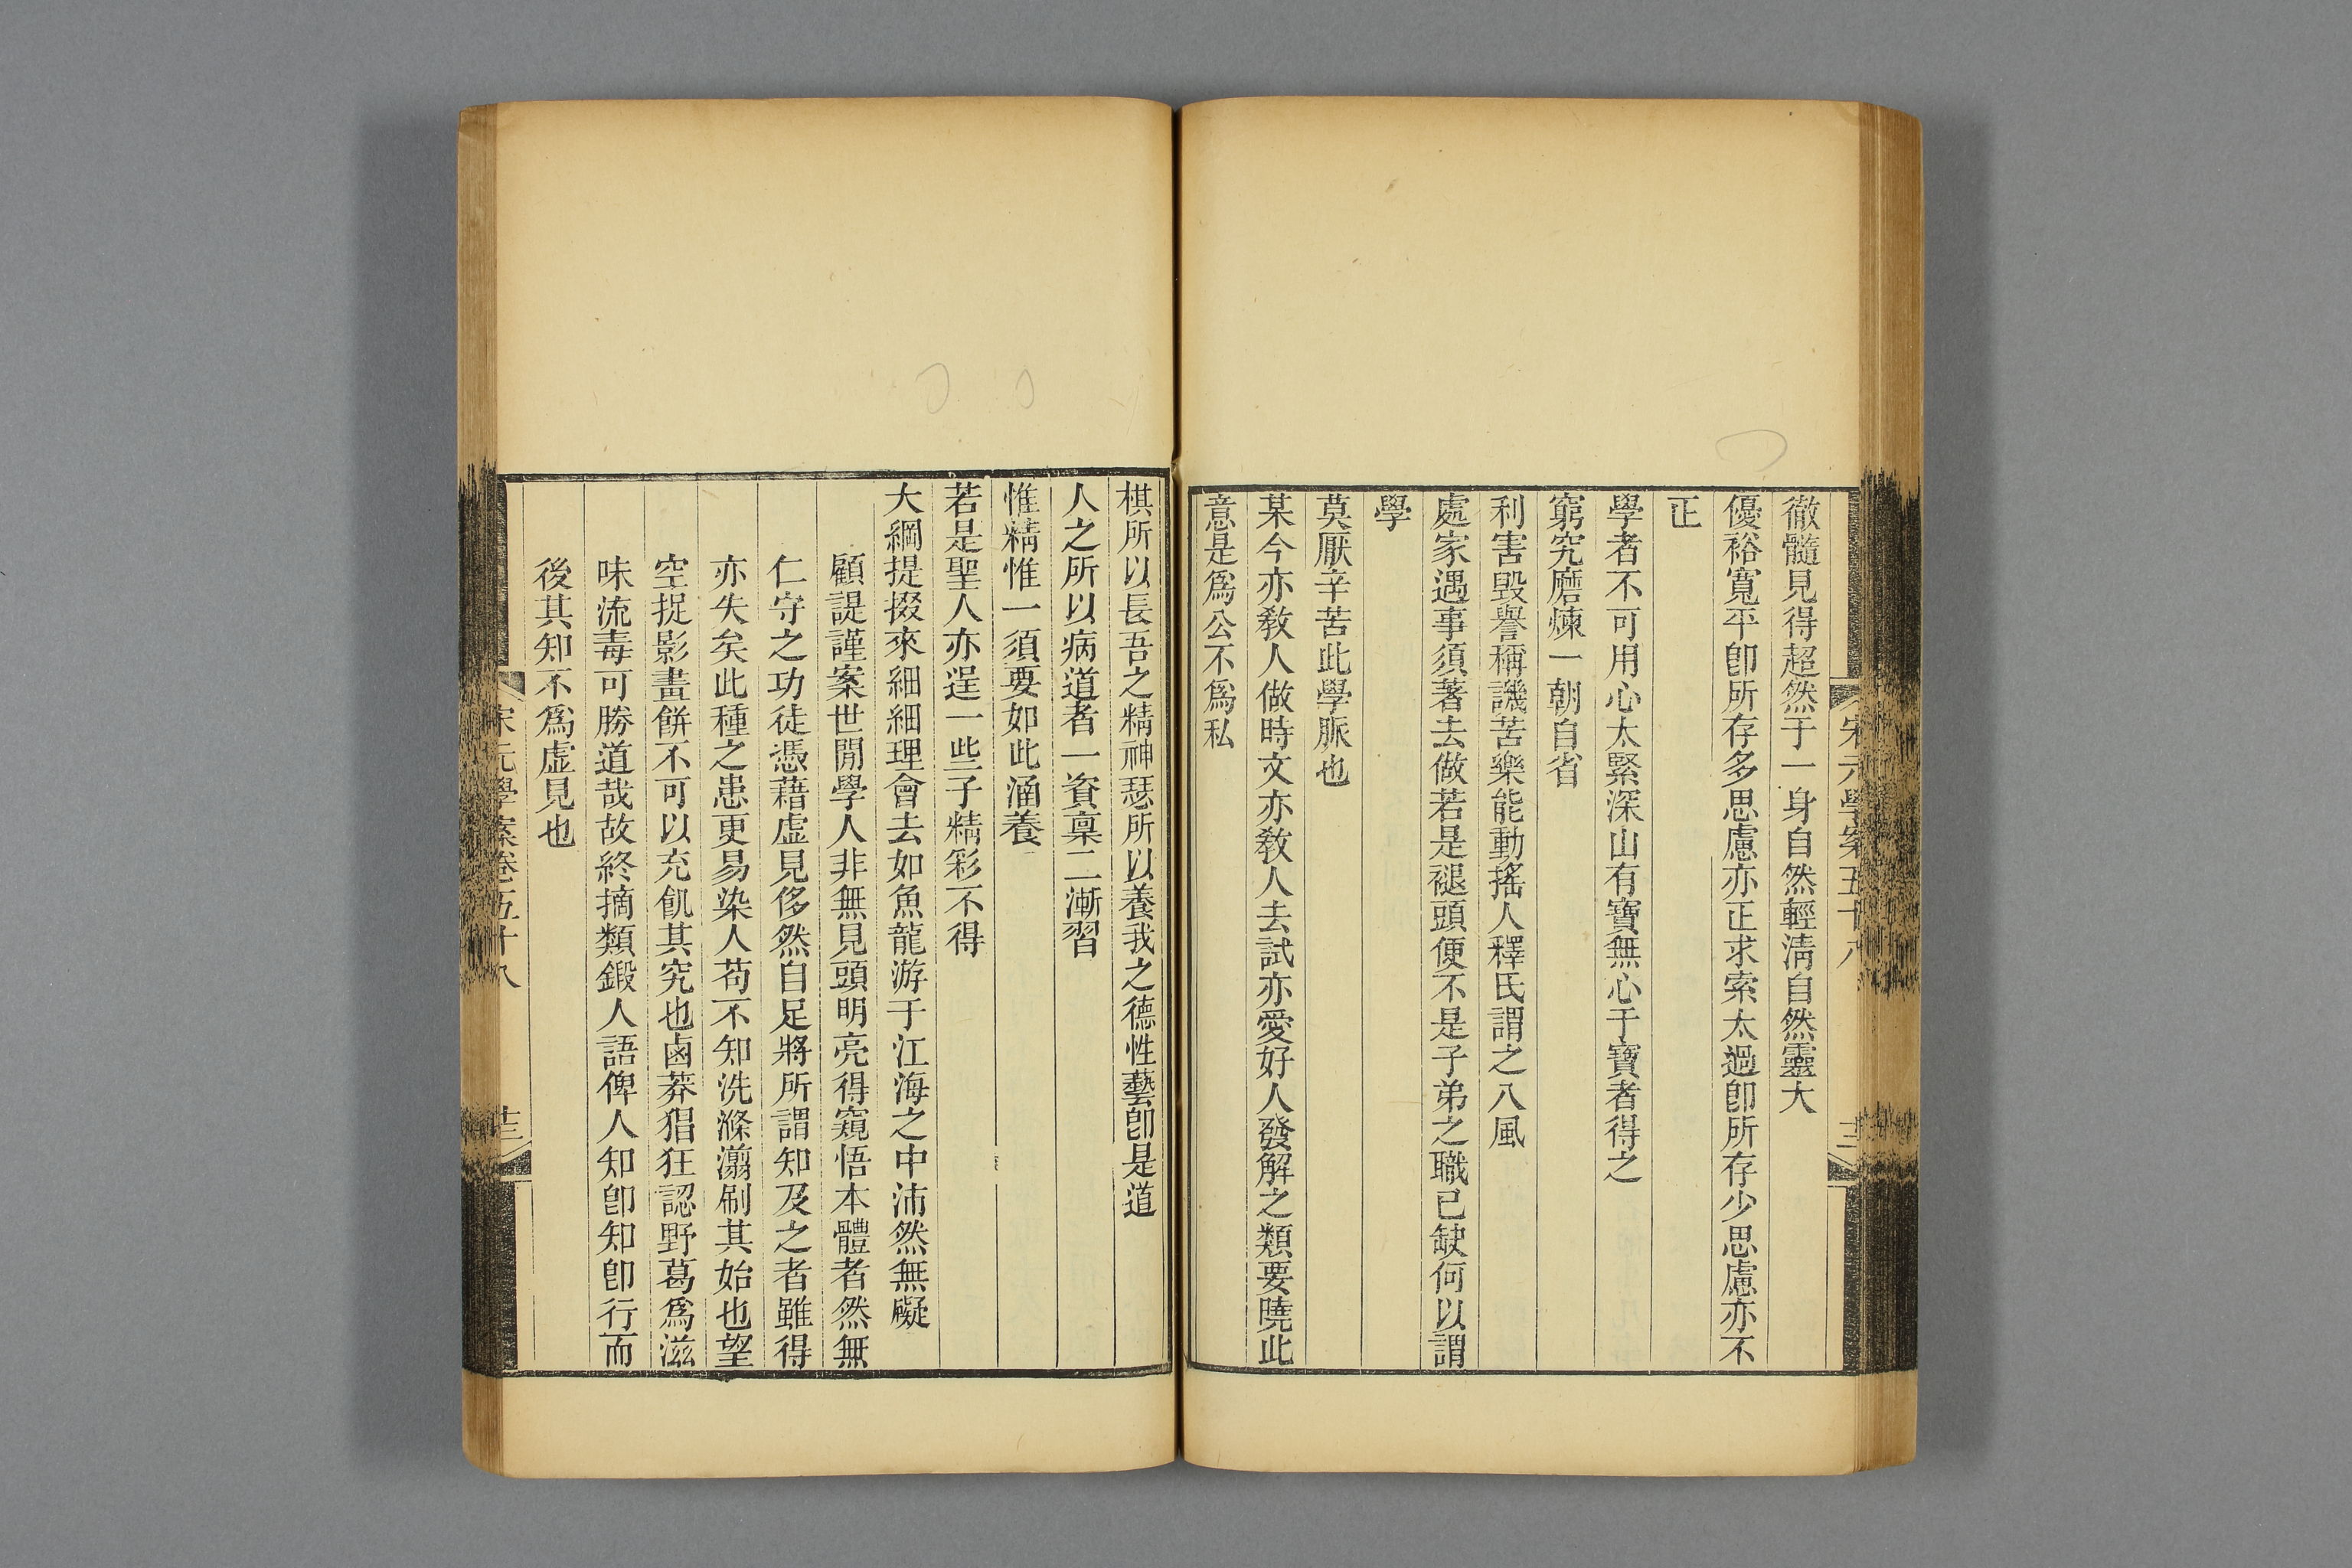 宋元學案五十八
徹髓見得超然于一身自然輕淸自然靈大
優裕寬平卽所存多思慮亦正求索太過卽所存少思慮亦不
正
學者不可用心太緊深山有寶無心于寶者得之
窮究磨煉一朝自省
利害毀譽稱譏苦樂能動搖人釋氏謂之八風
處家遇事須著去做若是褪頭便不是子弟之職已缺何以謂
學
莫厭辛苦此學脈也
某今亦敎人做時文亦敎人去試亦愛好人發解之類要曉此
意是爲公不爲私
棋所以長吾之精神瑟所以養我之德性藝卽是道
人之所以病道者一資稟二漸習
惟精惟一須要如此涵養
若是聖人亦逞一些子精彩不得
大綱提掇來細細理會去如魚龍游于江海之中沛然無礙
顧諟謹案世閒學人非無見頭明亮得窺悟本體者然無
仁守之功徒憑藉虛見侈然自足將所謂知及之者雖得
亦失矣此種之患更易染人苟不知洗滌瀏刷其始也望
空捉影畫餅不可以充飢其究也鹵莽猖狂認野葛爲滋
味流毒可勝道哉故終摘類鍛人語俾人知卽知卽行而
後其知不爲虛見也
宋元學案卷五十八